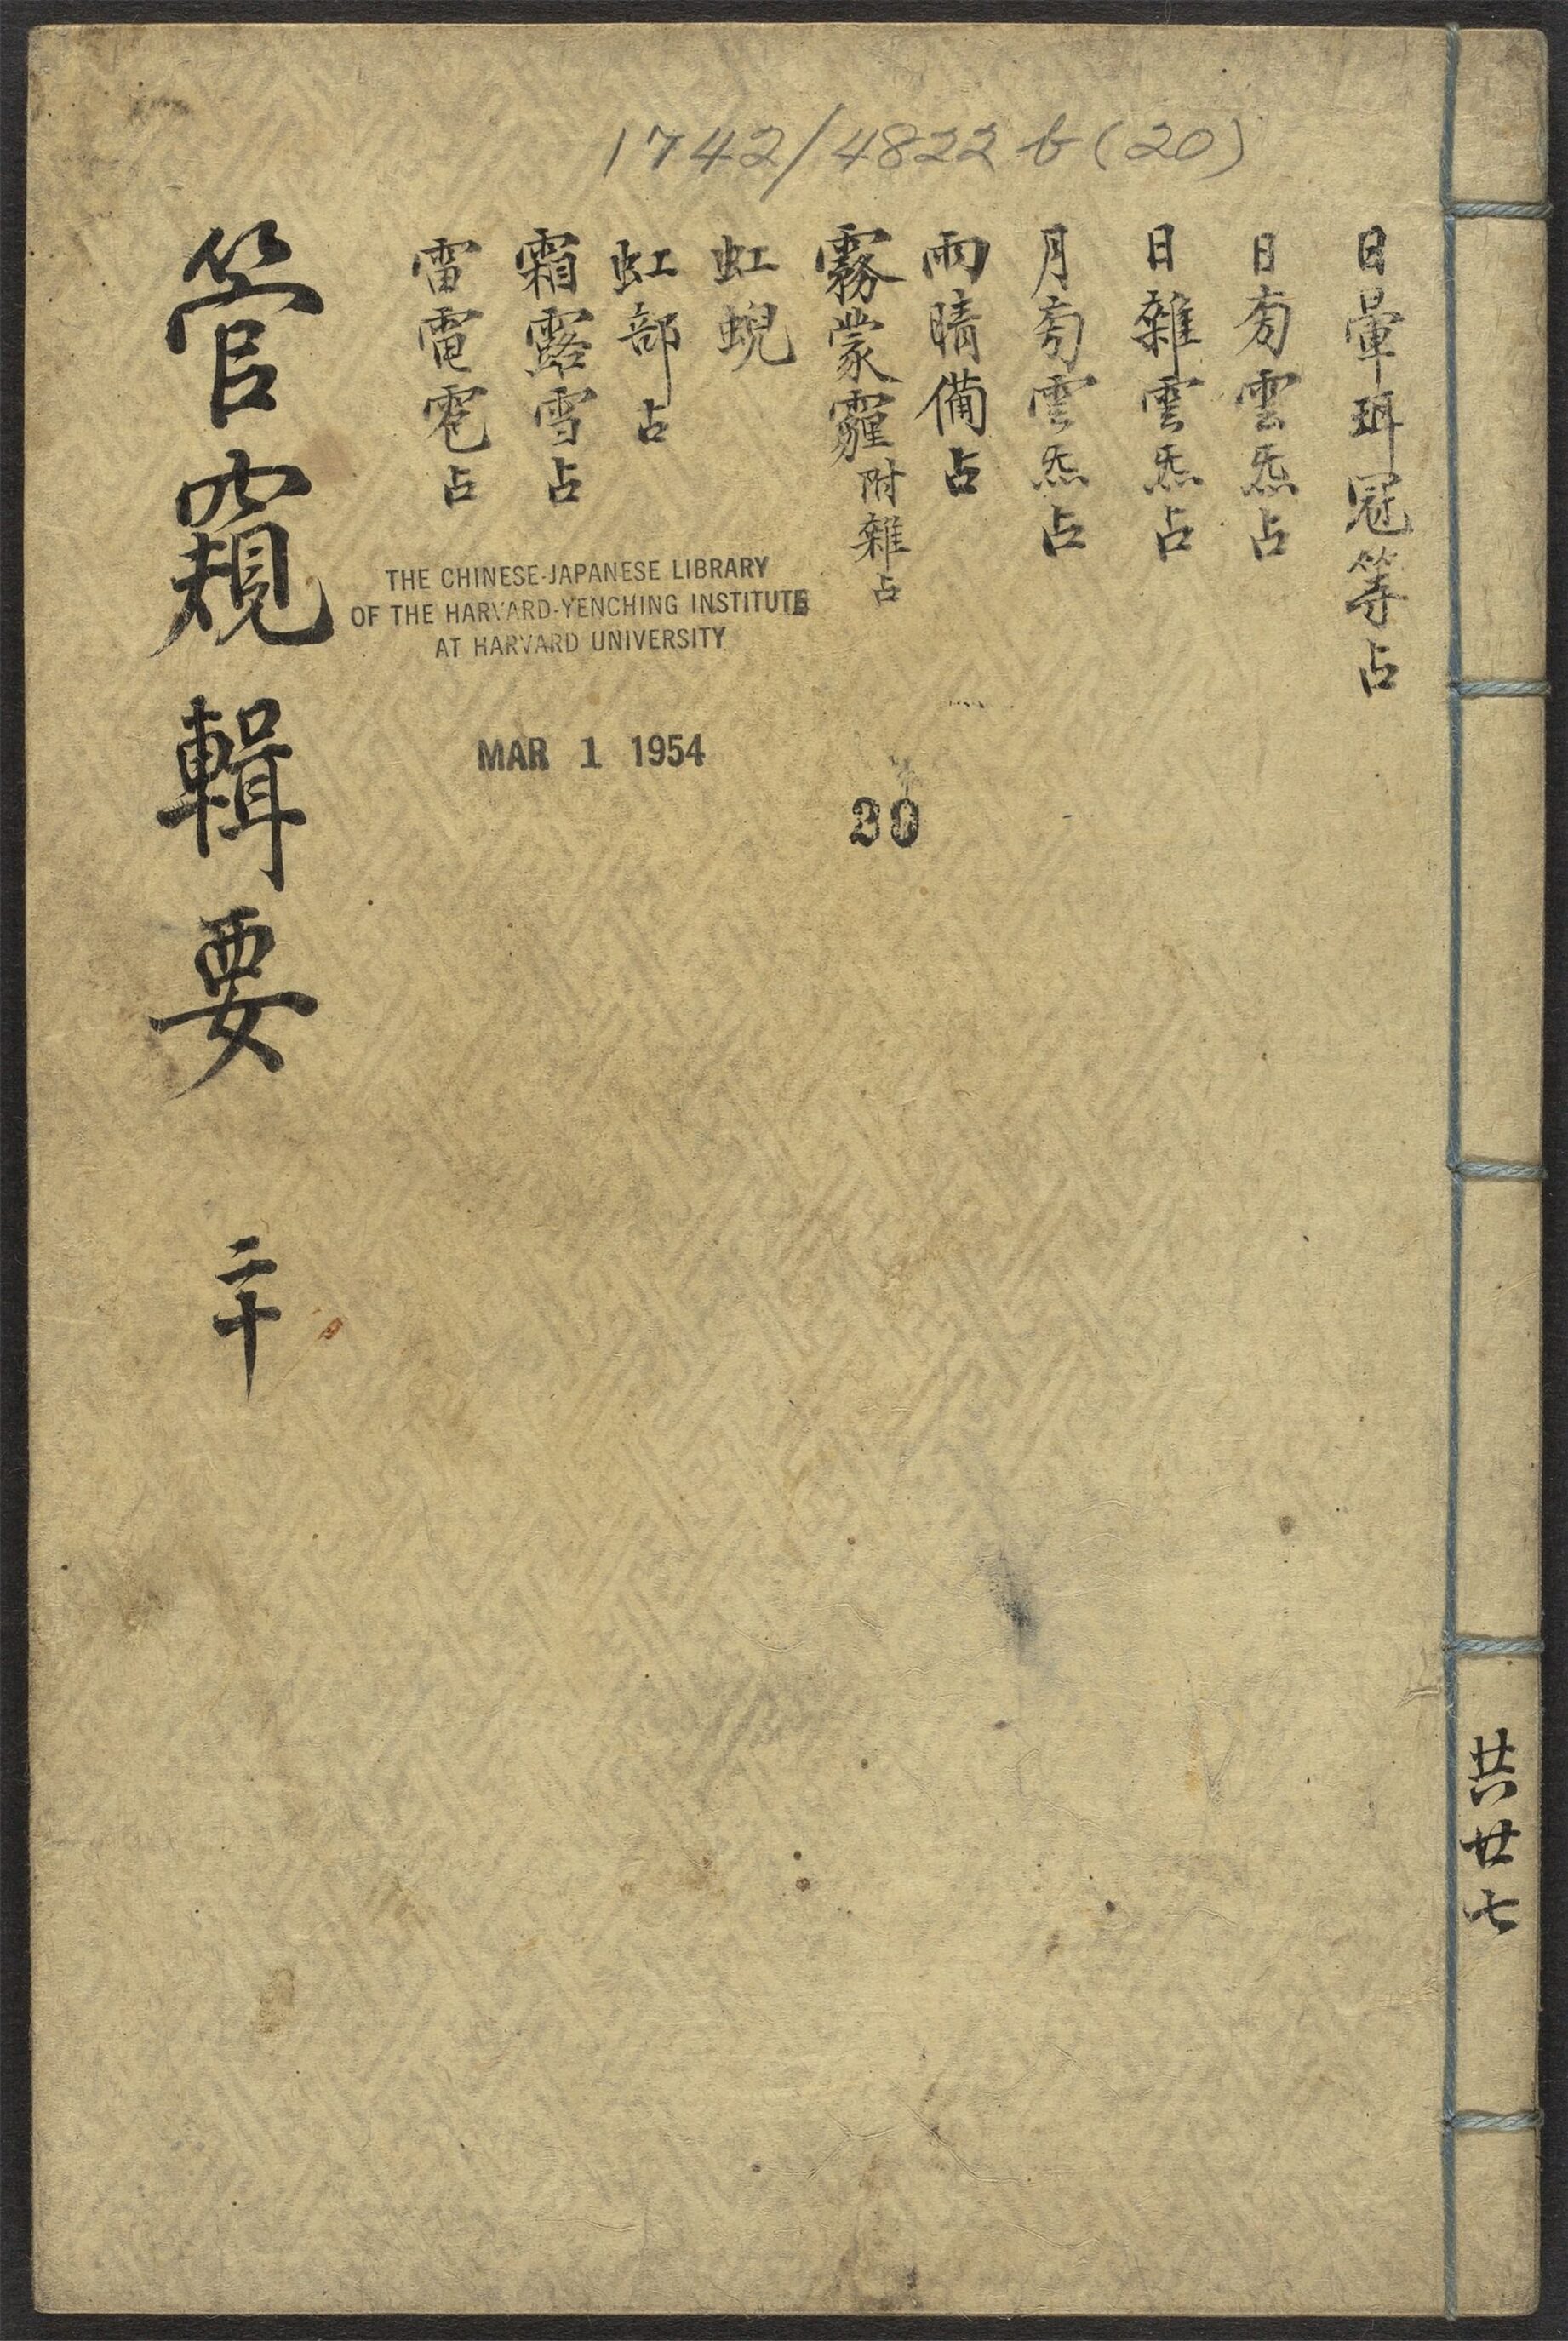 1742/4822 b (20)
日暈珥冠等占
日旁雲炁占
日雜雲炁占
月旁雲炁占
雨晴備占
霧蒙霾附雜占
虹蜺
虹部占
霜露雪占
雷電雹占
管窺輯要 二十
THE CHINESE-JAPANESE LIBRARY
OF THE HARVARD-YENCHING INSTITUTE
AT HARVARD UNIVERSITY
MAR 1 1954
20
共廿七